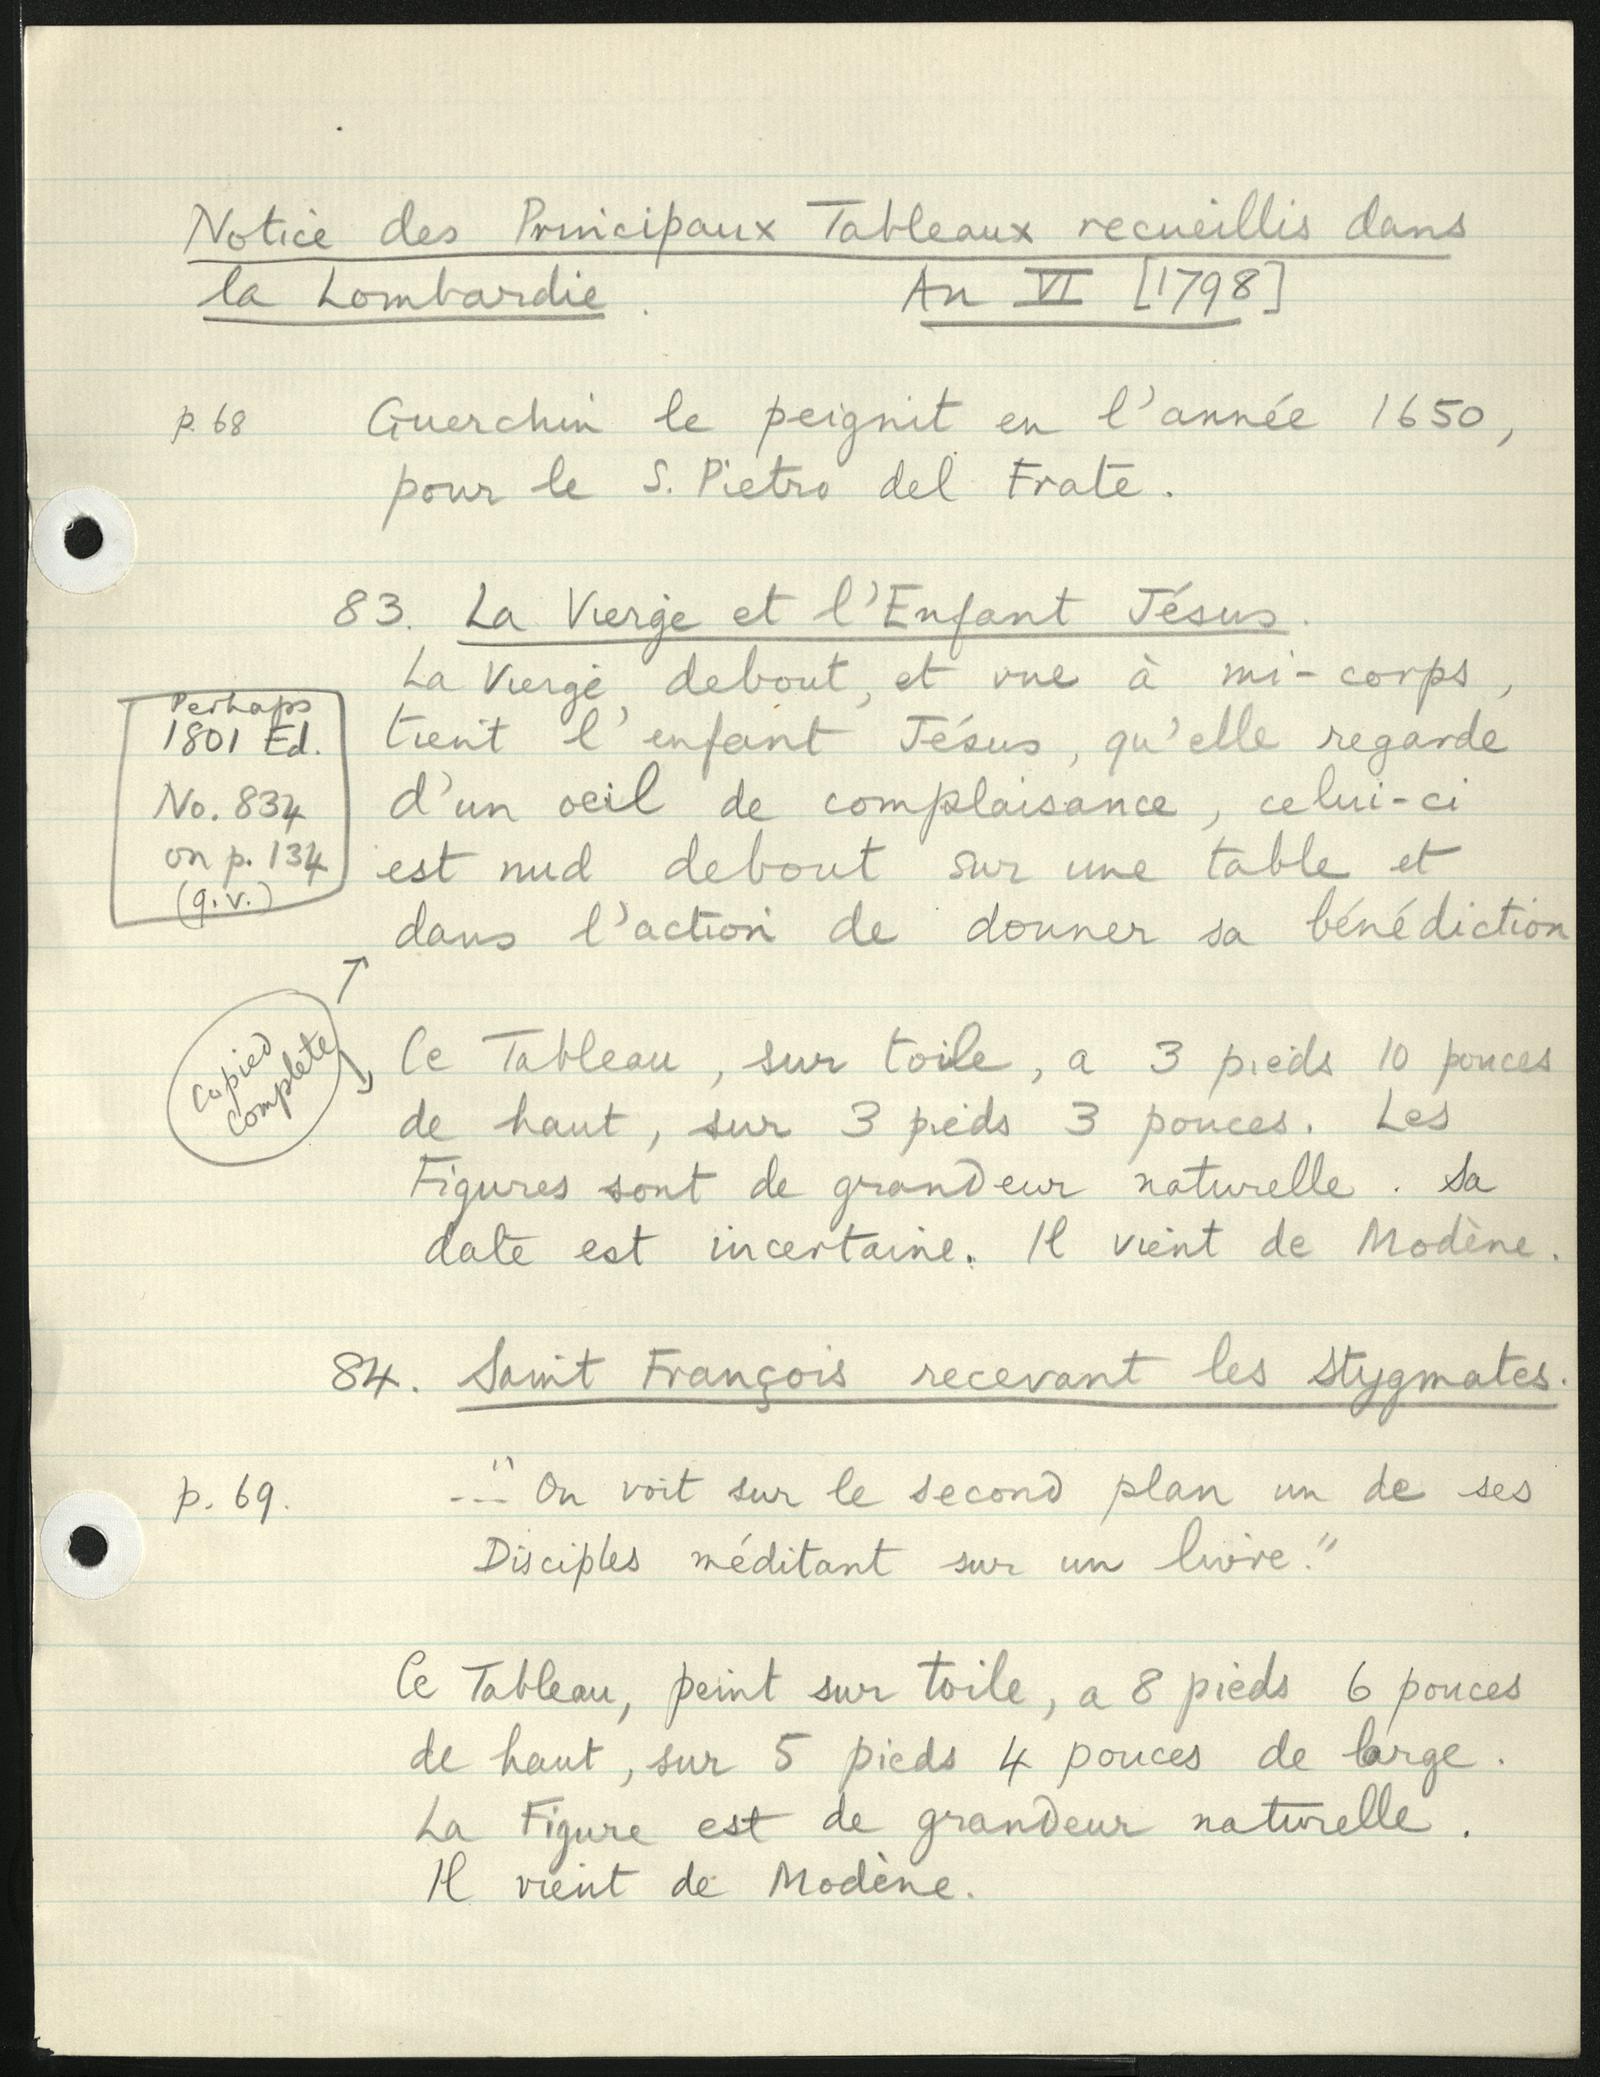 Notice des Principaux Tableaux recueillis dans
la Lombardie. An VI [1798]
p. 68 Guerchin le peignit en l'année 1650,
pour le S. Pietro del Frate.
83. La Vierge et l'Enfant Jésus.
La Vierge, debout, et vue à mi-corps,
tient l'enfant Jésus, qu'elle regarde
d'un oeil de complaisance, celui-ci
est nud debout sur une table et
dans l'action de donner sa bénédiction
Perhaps
1801 Ed.
No. 834
on p. 134
(q.v.)
↑
Copied
complete
↓
Ce Tableau, sur toile, a 3 pieds 10 pouces
de haut, sur 3 pieds 3 pouces. Les
Figures sont de grandeur naturelle. Sa
date est incertaine. Il vient de Modène.
84. Saint François recevant les Stygmates.
p. 69. --- "On voit sur le second plan un de ses
Disciples méditant sur un livre."
Ce Tableau, peint sur toile, a 8 pieds 6 pouces
de haut, sur 5 pieds 4 pouces de large.
La Figure est de grandeur naturelle.
Il vient de Modène.